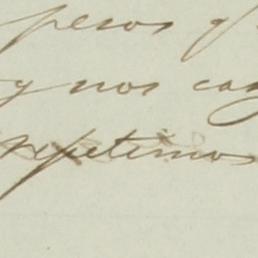 pesos q
y nos ca
repetimos